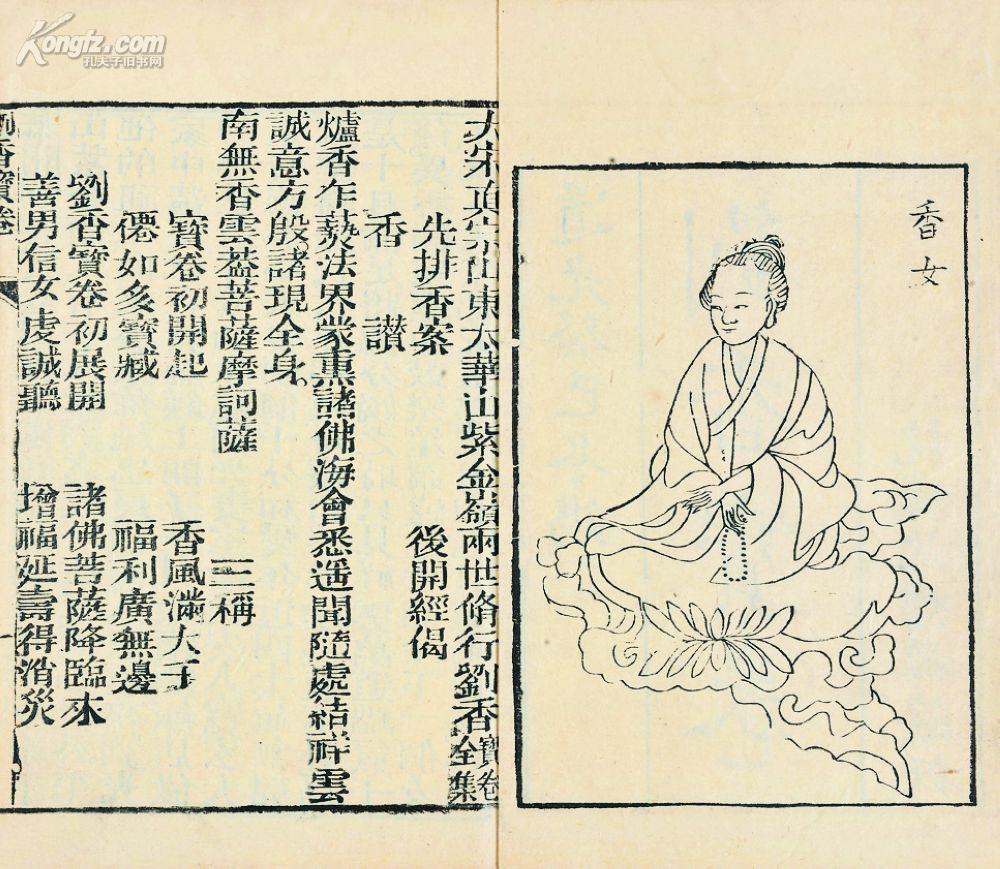 Kongfz.com
孔夫子旧书网
香女
大宋真宗山東太華山紫金嶺兩世脩行劉香寶卷全集
先排香案 後開經偈
香讃
爐香乍爇法界蒙熏諸佛海會悉遥聞隨處結祥雲
誠意方殷諸現全身
南無香雲葢菩薩摩訶薩 三稱
寶卷初開起 香風滿大千
僊如多寶臧 福利廣無邊
劉香寶卷初展開 諸佛菩薩降臨來
善男信女虔誠聽 增福延壽得消災
劉香寶卷
一